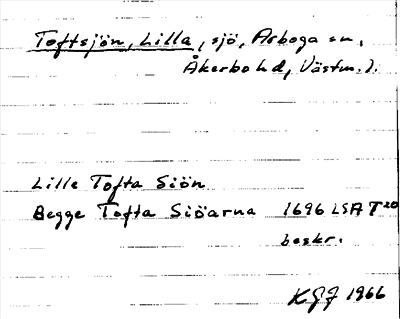 Toftsjön, Lilla, sjö, Arboga sn,
Åkerbo hd, Västm. l.
Lille Tofta Siön
Begge Tofta Siöarna 1696 LSA T20
beskr.
KGJ 1966